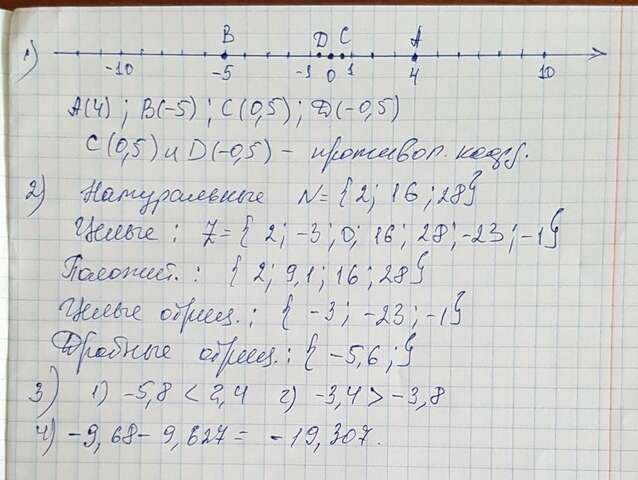 1)
B D C A
-10 -5 -1 0 1 4 10
A(4); B(-5); C(0,5); D(-0,5)
C(0,5) и D(-0,5) - противоп. коорд.
2) Натуральные N={2; 16; 28}
Целые: Z={2; -3; 0; 16; 28; -23; -1}
Положит.: {2; 9,1; 16; 28}
Целые отриц.: {-3; -23; -1}
Дробные отриц.: {-5,6;}
3) 1) -5,8 < 2,4 2) -3,4 > -3,8
4) -9,68 - 9,627 = -19,307.